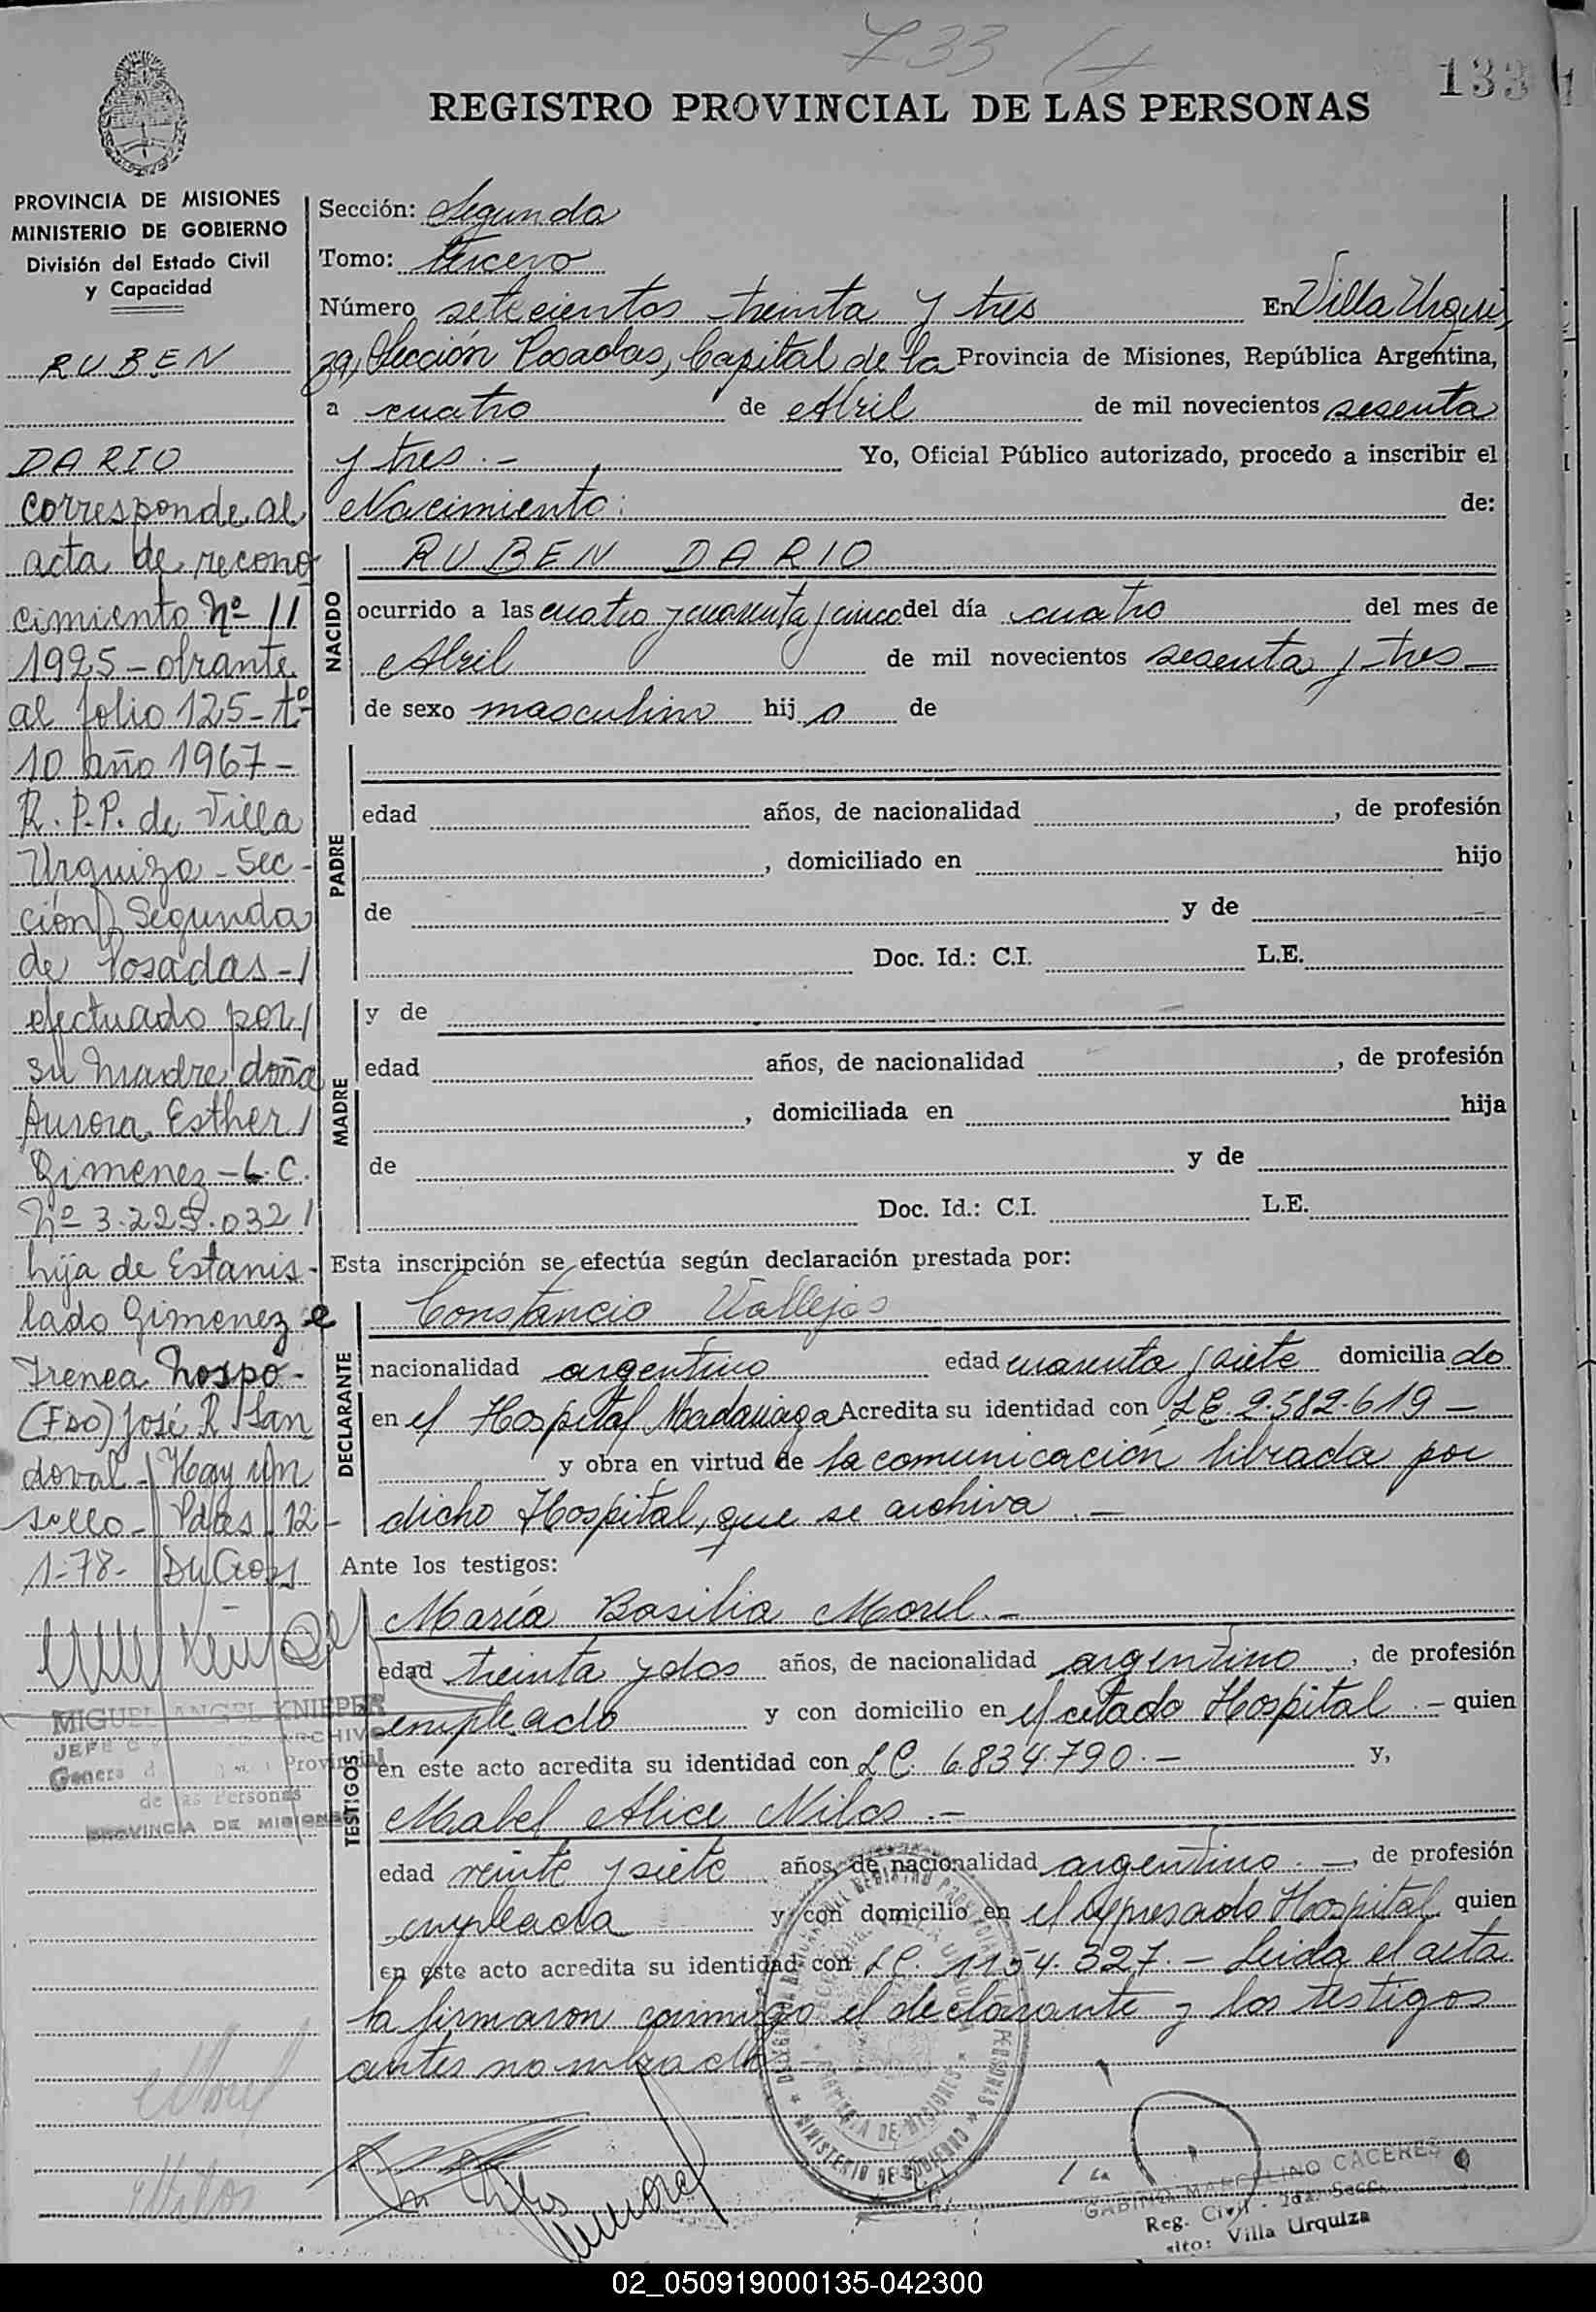 733
133
REGISTRO PROVINCIAL DE LAS PERSONAS
PROVINCIA DE MISIONES
MINISTERIO DE GOBIERNO
División del Estado Civil
y Capacidad
RUBEN
DARIO
corresponde al
acta de recono
cimiento Nº 11
1925 - obrante
al folio 125 - tº
10 año 1967 -
R. P. P. de Villa
Urquiza - Sec -
ción Segunda
de Posadas - /
efectuado por /
su madre doña
Aurora Esther /
Gimenez - L. C.
Nº 3.225.032 /
hija de Estanis -
lado Gimenez e
Irenea Nospo -
(Fdo) José R San
doval - Hay un
sello - Pdas 12 -
1 - 78 -
MIGUEL ANGEL KNIEPER
JEFE ARCHIVO
Provincial
de las Personas
PROVINCIA DE MISIONES
Morel
Nilos
Sección: Segunda
Tomo: tercero
Número setecientos treinta y tres En Villa Urqui
za, Sección Posadas, Capital de la Provincia de Misiones, República Argentina,
a cuatro de Abril de mil novecientos sesenta
y tres. - Yo, Oficial Público autorizado, procedo a inscribir el
Nacimiento: de:
NACIDO
RUBEN DARIO
ocurrido a las cuatro y cuarenta y cinco del día cuatro del mes de
Abril de mil novecientos sesenta y tres -
de sexo masculino hijo de
PADRE
edad años, de nacionalidad , de profesión
, domiciliado en hijo
de y de
Doc. Id.: C.I. L.E.
MADRE
y de
edad años, de nacionalidad , de profesión
, domiciliada en hija
de y de
Doc. Id.: C.I. L.E.
Esta inscripción se efectúa según declaración prestada por:
DECLARANTE
Constancio Vallejos
nacionalidad argentino edad cuarenta y siete domiciliado
en el Hospital Madariaga Acredita su identidad con L.E. 2.582.619 -
y obra en virtud de la comunicación librada por
dicho Hospital, que se archiva . -
Ante los testigos:
TESTIGOS
María Basilia Morel. -
edad treinta y dos años, de nacionalidad argentino , de profesión
empleado y con domicilio en el citado Hospital . - quien
en este acto acredita su identidad con L.C. 6.834.790. - y,
Mabel Alice Nilos. -
edad veinte y siete años, de nacionalidad argentino. - , de profesión
empleada y con domicilio en el expresado Hospital quien
en este acto acredita su identidad con L.C. 1154.327. - Leida el acta
la firmaron conmigo el declarante y los testigos
antes nombrados
PROVINCIA DE MISIONES
MINISTERIO DE GOBIERNO
GABINO MARCELINO CACERES
Reg. Civil - 2da. Secc.
Villa Urquiza
02_050919000135-042300